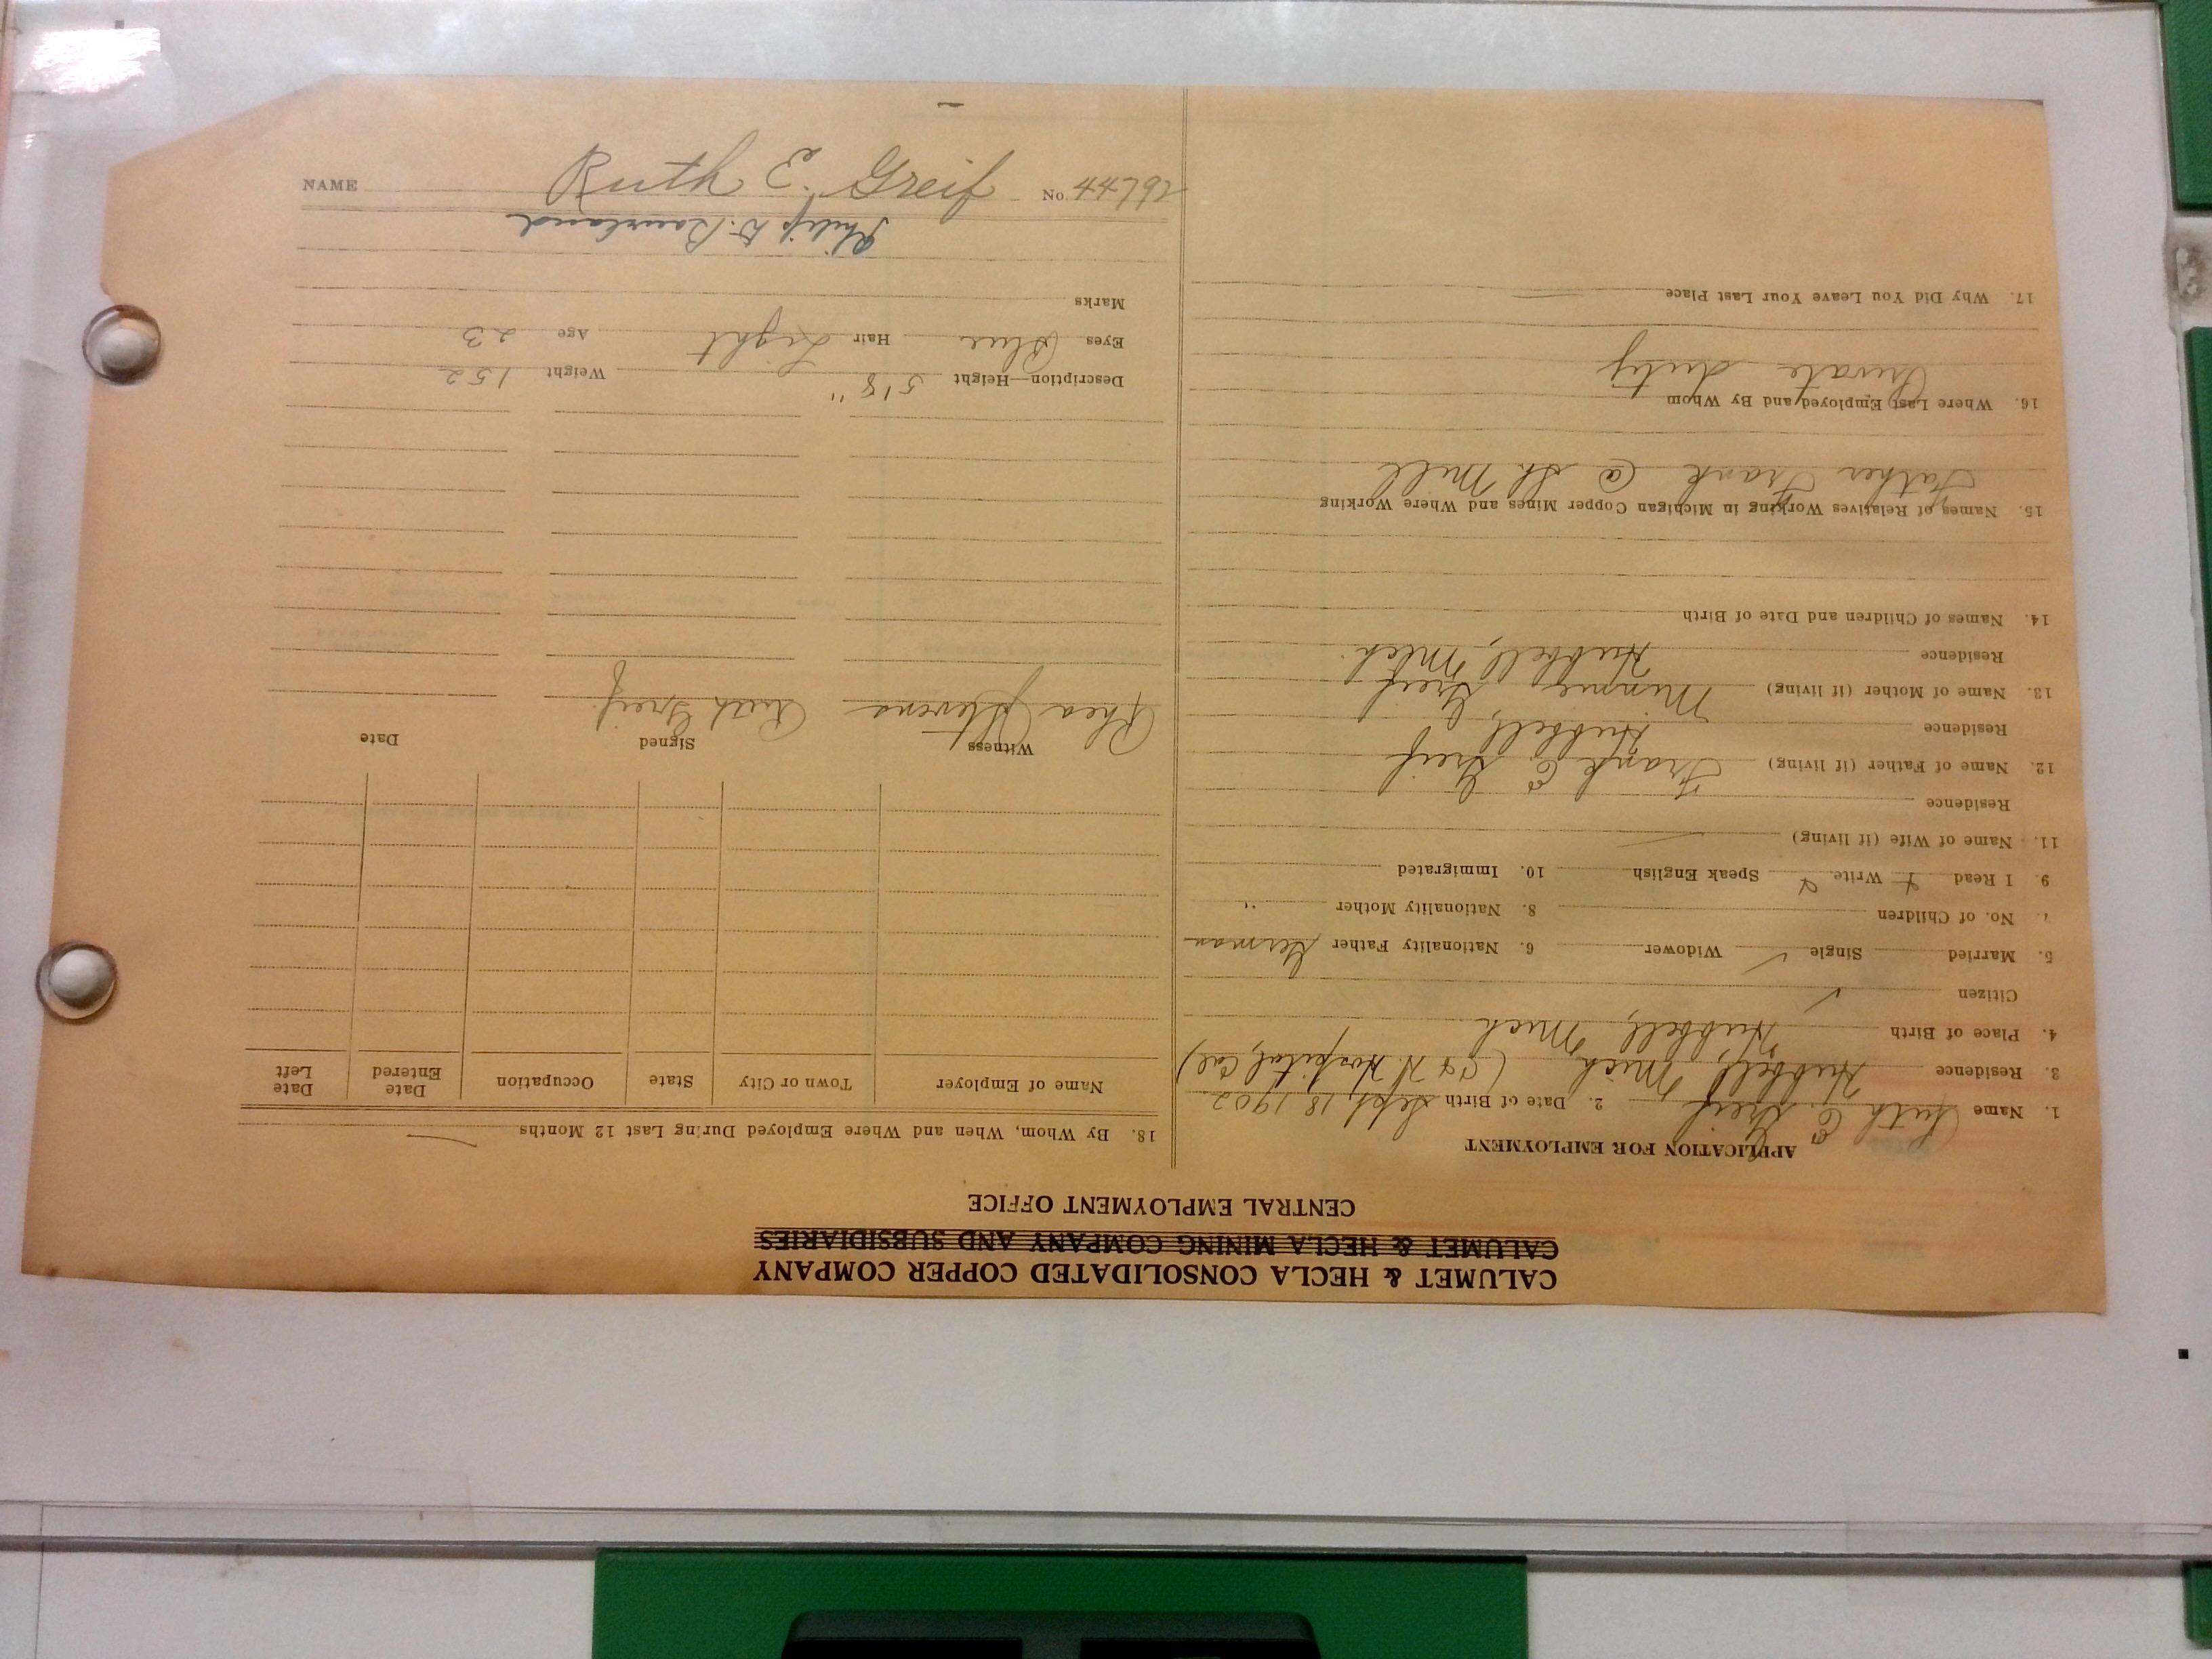 CALUMET & HECLA CONSOLIDATED COPPER COMPANY
CALUMET & HECLA MINING COMPANY AND SUBSIDIARIES
CENTRAL EMPLOYMENT OFFICE
APPLICATION FOR EMPLOYMENT
1. Name Ruth E. Greif 2. Date of Birth Sept. 18 1902
3. Residence Hubbell, Mich (C & H. Hospital, Cal)
4. Place of Birth Hubbell, Mich
Citizen ✓
5. Married Single ✓ Widower 6. Nationality Father German
7. No. of Children 8. Nationality Mother "
9. I Read Write Speak English 10. Immigrated
11. Name of Wife (if living)
Residence
12. Name of Father (if living) Frank E. Greif
Residence Hubbell,
13. Name of Mother (if living) Minnie Greif
Residence Hubbell, Mich.
14. Names of Children and Date of Birth
15. Names of Relatives Working in Michigan Copper Mines and Where Working
Father Frank @ Mill
16. Where Last Employed and By Whom
Private duty
17. Why Did You Leave Your Last Place
18. By Whom, When and Where Employed During Last 12 Months
Name of Employer Town or City State Occupation Date Entered Date Left
Witness Signed Date
Rhea Stevens Ruth Greif
Description—Height 5'8" Weight 152
Eyes Blue Hair Light Age 23
Marks
Philip D. Bourland
NAME Ruth E. Greif No. 44792